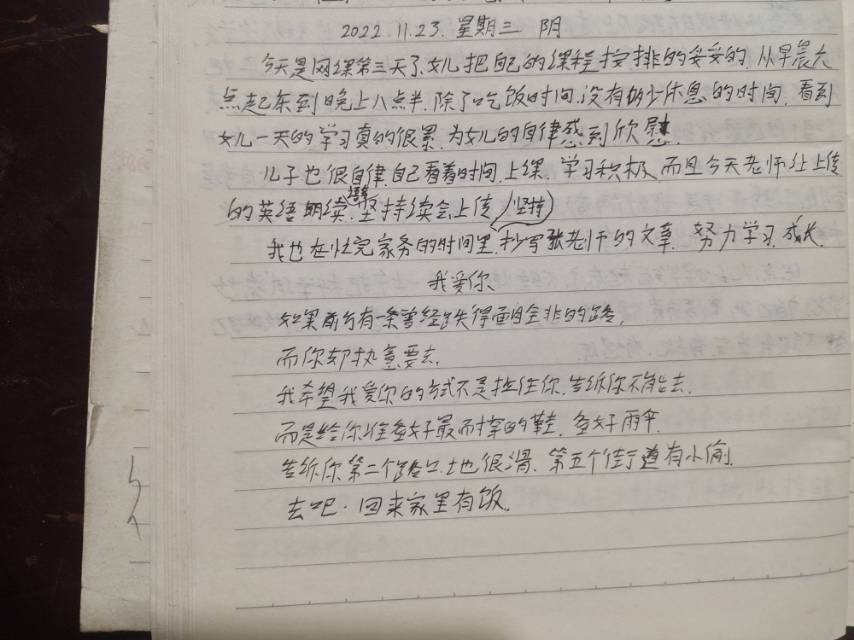 2022.11.23. 星期三 阴
今天是网课第三天了,女儿把自己的课程按排的妥妥的,从早晨六
点起床到晚上八点半,除了吃饭时间,没有多少休息的时间,看到
女儿一天的学习真的很累,为女儿的自律感到欣慰。
儿子也很自律,自己看着时间,上课,学习积极,而且今天老师让上传
的英语朗读,坚持续会上传(坚持)
我也在忙完家务的时间里,抄写张老师的文章,努力学习,成长
我爱你
如果前方有一条曾经跌得面目全非的路,
而你却执意要去,
我希望我爱你的方式不是拉住你,告诉你不能去,
而是给你准备好最耐穿的鞋,备好雨伞,
告诉你第二个路口,土也很滑,第五个街道有小偷,
去吧·回来家里有饭。